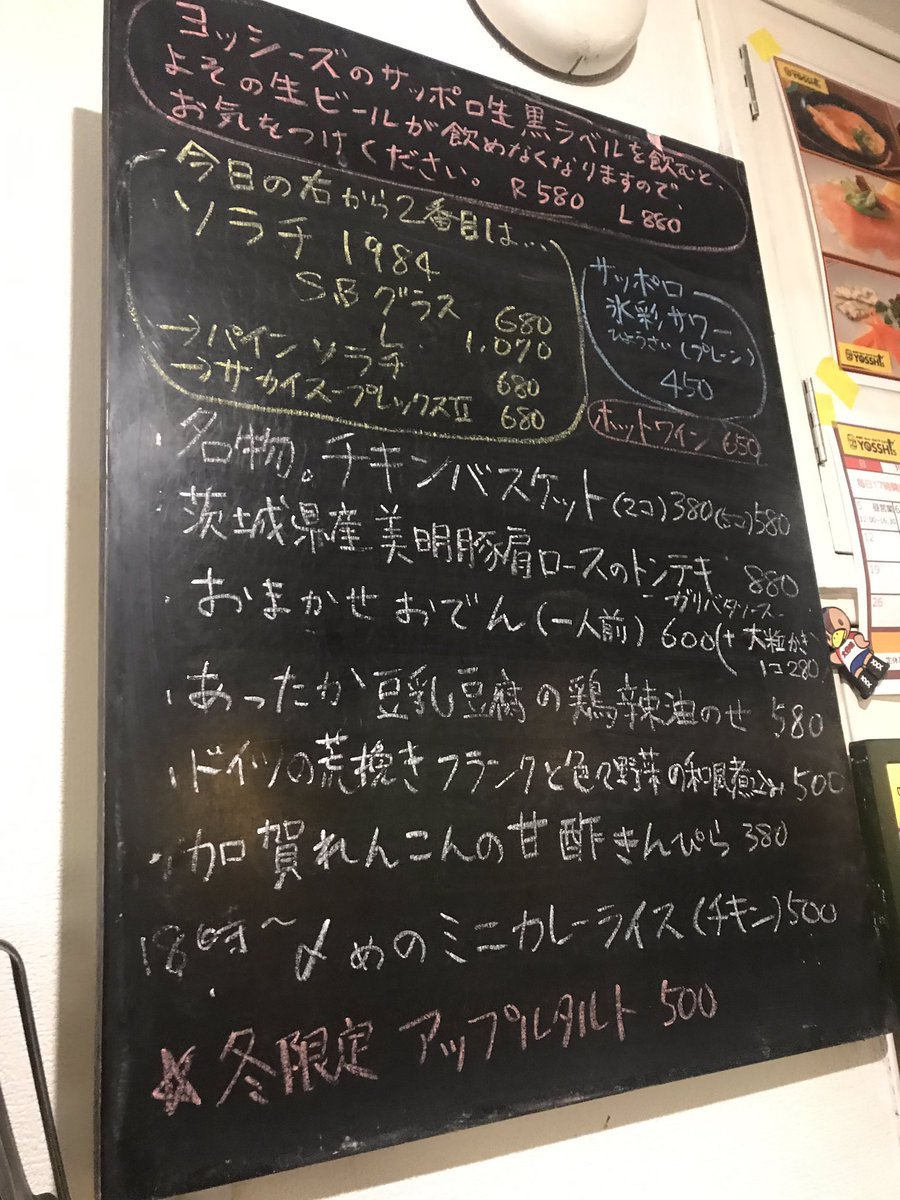 ヨッシーズのサッポロ生黒ラベルを飲むと、
よその生ビールが飲めなくなりますので、
お気をつけください。 R 580 L 880
今日の右から2番目は...
ソラチ 1984
SBグラス 680
L 1,070
→パインソラチ 680
→サカイスープレックスⅡ 680
サッポロ
氷彩サワー
ひょうさい(プレーン)
450
ホットワイン 650
名物。チキンバスケット(2コ)380(5コ)580
茨城県産美明豚肩ロースのトンテキ 880
ーガリバタソースー
おまかせおでん(一人前) 600(+大粒かき
1コ280)
あったか豆乳豆腐の鶏辣油のせ 580
ドイツの荒挽きフランクと色々野菜の和風煮込み 500
加賀れんこんの甘酢きんぴら 380
18時〜 〆めのミニカレーライス(チキン)500
☆冬限定 アップルタルト 500
YOSSHI'S
YOSSHI'S
YOSSHI'S
12
19
26